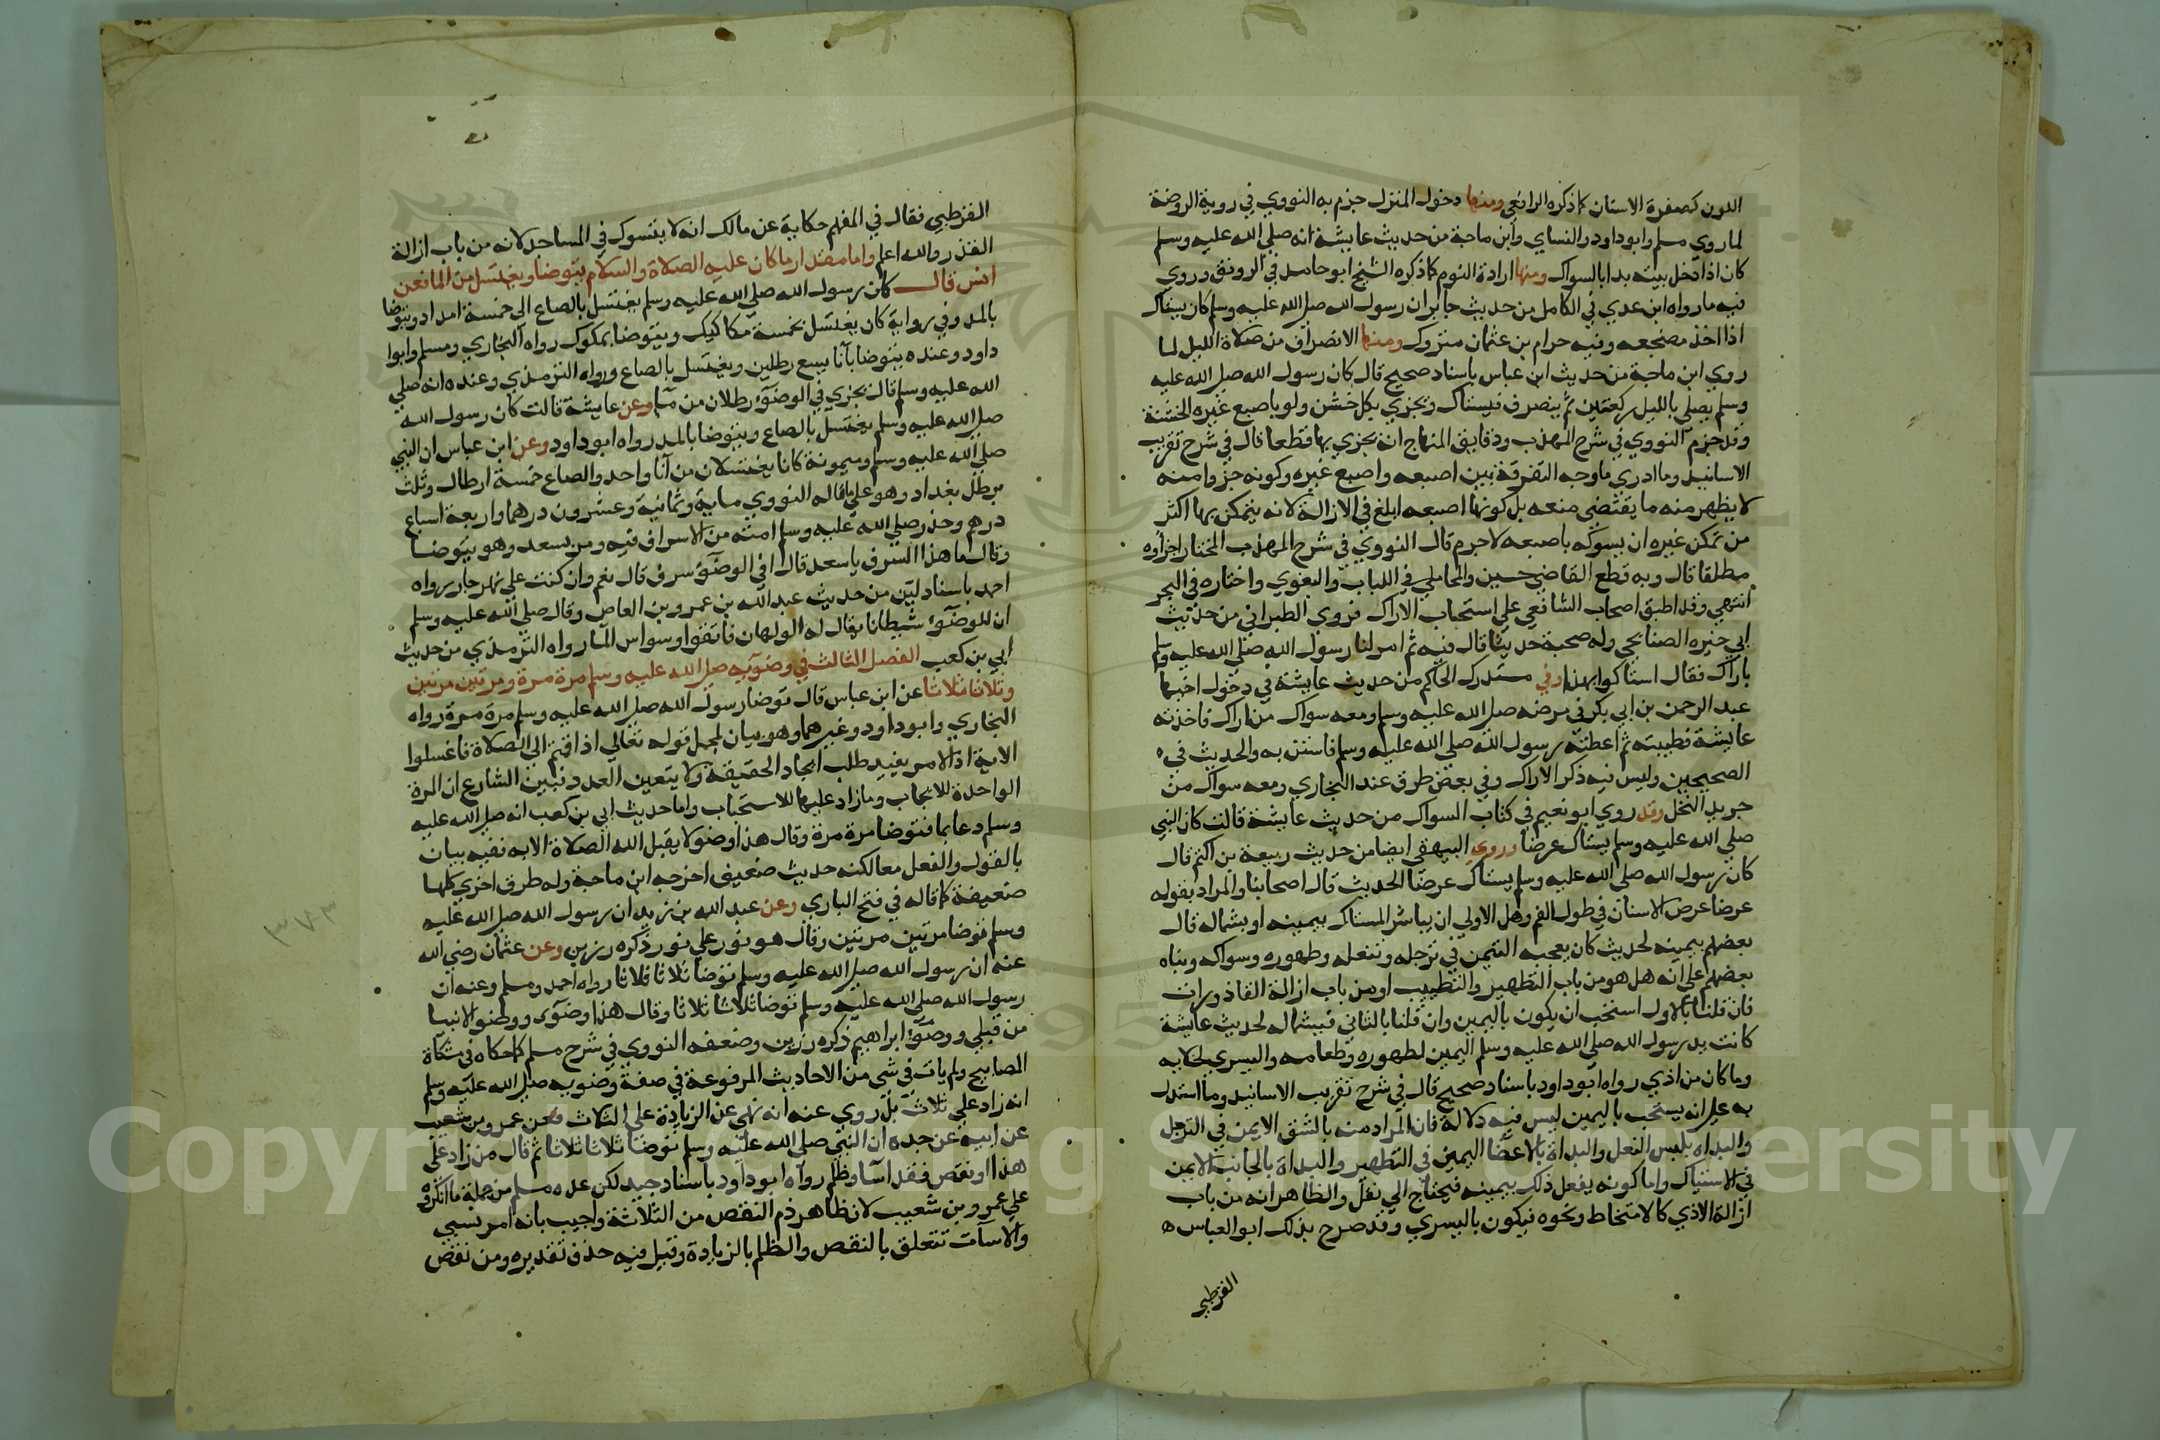 اللون كصفرة الاسنان كما ذكره الرافعي ومنها دخول المنزل جزم به النووي في روية الروضة
لما روي مسلم وابوداود والنساي وابن ماجة من حديث عايشة انه صلي الله عليه وسلم
كان اذا دخل بيته بدا بالسواك ومنها ارادة النوم كما ذكره الشيخ ابوحامد في الرونق وروي
فيه ما رواه ابن عدي في الكامل من حديث جابر ان رسول الله صلي الله عليه وسلم كان يستاك
اذا اخذ مضجعه وفيه حرام بن عثمان متروك ومنها الانصراف من صلاة الليل لما
روي ابن ماجة من حديث ابن عباس باسناد صحيح قال كان رسول الله صلي الله عليه
وسلم يصلي بالليل ركعتين ثم ينصرف فيستاك وتجزي بكل خشن ولو باصبع غيره الخشنة
وقد جزم النووي في شرح المهذب ودقايق المنهاج انه يجزي بها قطعا قال في شرح تقريب
الاسانيد وما ادري ما وجه التفرقة بين اصبعه واصبع غيره وكونه جزوا منه
لا يظهر منه ما يقتضي منعه بل كونها اصبعه ابلغ في الازالة لانه يتمكن بها اكثر
من تمكن غيره ان يسوكه باصبعه لاجرم قال النووي في شرح المهذب المختار اجزاوه
مطلقا قال وبه قطع القاضي حسين والمحاملي في اللباب والبغوي واختاره في البحر
انتهي وقد اطبق اصحاب الشافعي علي استحباب الاراك فروي الطبراني من حديث
ابي خيره الصنابحي وله صحبة حديثا قال فيه ثم امر لنا رسول الله صلي الله عليه وسلم
باراك فقال استاكوا بهذا وفي مستدرك الحاكم من حديث عايشة في دخول اخيها
عبد الرحمن بن ابي بكر في مرضه صلي الله عليه وسلم ومعه سواك من اراك فاخذته
عايشة فطيبته ثم اعطته رسول الله صلي الله عليه وسلم فاستن به والحديث في
الصحيحين وليس فيه ذكر الاراك وفي بعض طرق عند البخاري ومعه سواك من
جريد النخل وقد روي ابونعيم في كتاب السواك من حديث عايشة قالت كان النبي
صلي الله عليه وسلم يستاك عرضا وروي البيهقي ايضا من حديث ربيعة بن اكثم قال
كان رسول الله صلي الله عليه وسلم يستاك عرضا الحديث قال اصحابنا والمراد بقوله
عرضا عرض الاسنان في طول الفم وهل الاولي ان يباشر المستاك بيمينه او بشماله قال
بعضهم بيمينه لحديث كان يعجبه التيمن في ترجله وتنعله وطهوره وسواكه وبناه
بعضهم علي انه هل هو من باب التطهير والتطييب او من باب ازالة القاذورات
فان قلنا بالاول استحب ان يكون باليمين وان قلنا بالثاني فبشماله لحديث عايشة
كانت يد رسول الله صلي الله عليه وسلم اليمين لطهوره وطعامه واليسري لخلايه
وما كان من اذي رواه ابوداود باسناد صحيح قال في شرح تقريب الاسانيد وما استدل
به علي انه يستحب باليمين ليس فيه دلالة فان المراد منه بالشق الايمن في الترجل
والبداه بلبس النعل والبداة بالاعضا اليمين في التطهير والبداة بالجانب الايمن
في الاستياك واما كونه يفعل ذلك بيمينه فيحتاج الي نقل والظاهر انه من باب
ازالة الاذي كالامتخاط ونحوه فيكون باليسري وقد صرح بذلك ابوالعباس
القرطبي
القرطبي فقال في المفهم حكاية عن مالك انه لا يتسوك في المساجد لانه من باب ازالة
القذر والله اعلم واما مقدار ما كان عليه الصلاة والسلام يتوضا ويغتسل من الما فعن
انس قال كان رسول الله صلي الله عليه وسلم يغتسل بالصاع الي خمسة امداد ويتوضا
بالمد وفي رواية كان يغتسل بخمسة مكاكيك ويتوضا بمكوك رواه البخاري ومسلم وابوا
داود وعنده يتوضا بانا يسع رطلين ويغتسل بالصاع ورواه الترمذي وعنده انه صلي
الله عليه وسلم قال يجزي في الوضوء رطلان من ما وعن عايشة قالت كان رسول الله
صلي الله عليه وسلم يغتسل بالصاع ويتوضا بالمد رواه ابوداود وعن ابن عباس ان النبي
صلي الله عليه وسلم وميمونة كانا يغتسلان من انا واحد والصاع خمسة ارطال وثلث
برطل بغداد وهو علي ما قاله النووي ماية وثمانية وعشرون درهما واربعة اسباع
درهم وحذر صلي الله عليه وسلم امته من الاسراف فيه ومر بسعد وهو يتوضا
وقال ما هذا السرف يا سعد قال افي الوضوء سرف قال نعم وان كنت علي نهر جار رواه
احمد باسناد لين من حديث عبد الله بن عمرو بن العاص وقال صلي الله عليه وسلم
ان للوضوء شيطانا يقال له الولهان فاتقوا وسواس الما رواه الترمذي من حديث
ابي بن كعب الفصل الثالث في وضويه صلي الله عليه وسلم مرة مرة ومرتين مرتين
وثلاثا ثلاثا عن ابن عباس قال توضا رسول الله صلي الله عليه وسلم مرة مرة رواه
البخاري وابوداود وغيرهما وهو بيان لمجمل قوله تعالي اذا قمتم الي الصلاة فاغسلوا
الاية اذ الامر يفيد طلب ايجاد الحقيقة ولا يتعين العدد فبين الشارع ان المرة
الواحدة للايجاب وما زاد عليها للاستحباب واما حديث ابي بن كعب انه صلي الله عليه
وسلم دعا بما فتوضا مرة مرة وقال هذا وضو لا يقبل الله الصلاة الا به ففيه بيان
بالقول والفعل معا لكنه حديث ضعيف اخرجه ابن ماجة وله طرق اخري كلها
ضعيفة كما قاله في فتح الباري وعن عبد الله بن زيد ان رسول الله صلي الله عليه
وسلم توضا مرتين مرتين وقال هو نور علي نور ذكره رزين وعن عثمان رضي الله
عنه ان رسول الله صلي الله عليه وسلم توضا ثلاثا ثلاثا رواه احمد ومسلم وعنه ان
رسول الله صلي الله عليه وسلم توضا ثلاثا ثلاثا وقال هذا وضوءي ووضو الانبيا
من قبلي ووضوء ابراهيم ذكره رزين وضعفه النووي في شرح مسلم كما حكاه في مشكاة
المصابيح ولم يات في شي من الاحاديث المرفوعة في صفة وضويه صلي الله عليه وسلم
انه زاد علي ثلاث بل روي عنه انه نهي عن الزيادة علي الثلاث فعن عمرو بن شعيب
عن ابيه عن جده ان النبي صلي الله عليه وسلم توضا ثلاثا ثلاثا ثم قال من زاد علي
هذا او نقص فقد اسا وظلم رواه ابوداود باسناد جيد لكن عده مسلم من جملة ما انكروه
علي عمرو بن شعيب لان ظاهر ذم النقص من الثلاثة واجيب بانه امر نسبي
والاساة تتعلق بالنقص والظلم بالزيادة وقيل فيه حذف تقديره ومن نقص
٣٧٣
Copyright King Saud University